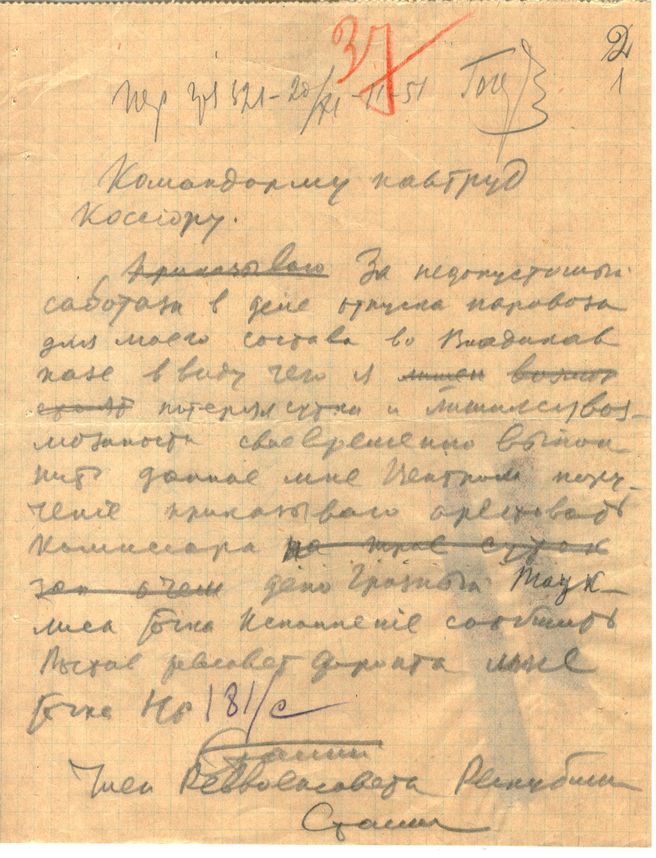 37
2
1
пер 321-20/21-11-51
Командарму кавтруд
Коссiору.
Приказываю За недопустимый
саботаж в деле отпуска паровоза
для моего состава во Владикав
казе в виду чего я лишен возмож
потерял сутки и лишился воз-
можности своевременно выпол
нить данное мне Центром пору-
ченiе приказываю арестовать
комиссара на трое суток
зап о чем депо Грозный Таук-
лиса точка Исполненiе сообщить
Ростов реввоенсовет фронта мне
точка Нр 181/с
Сталин
Член Реввоенсовета Республики
Сталин